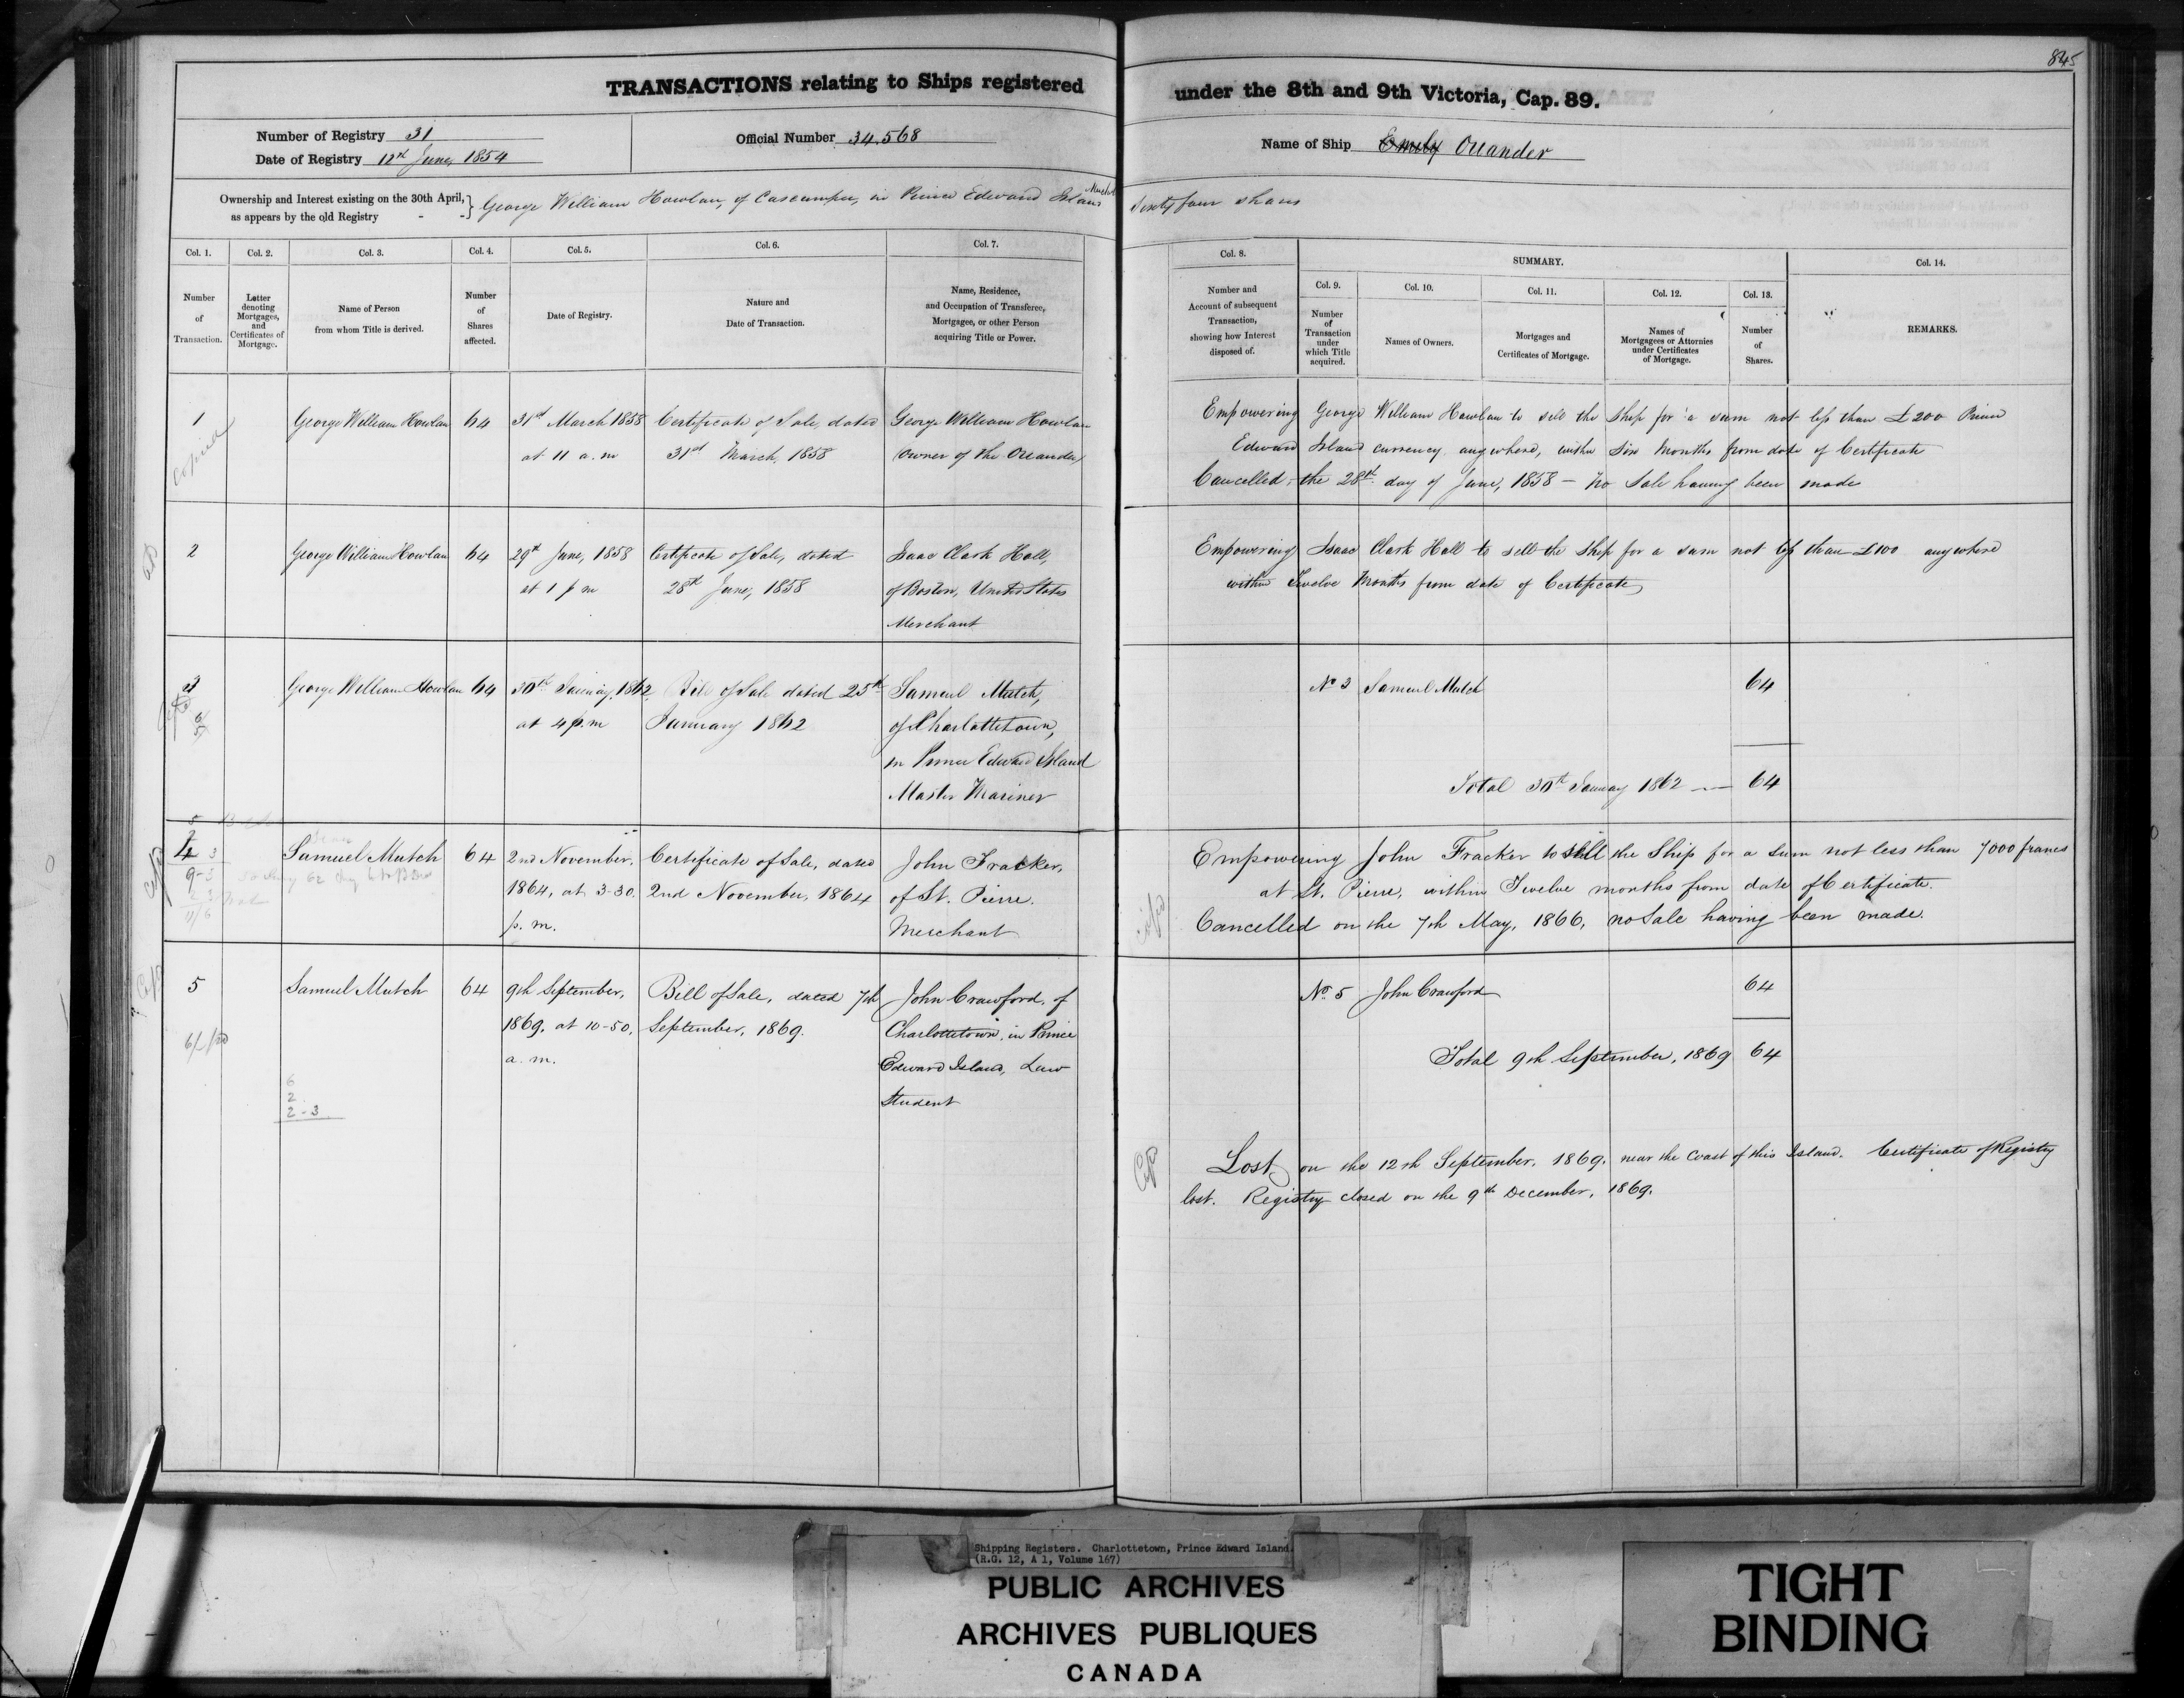 845
TRANSACTIONS relating to Ships registered under the 8th and 9th Victoria, Cap. 89.
Number of Registry 31
Date of Registry 12th June, 1854
Official Number 34.568
Name of Ship Emily Oriander
Ownership and Interest existing on the 30th April, as appears by the old Registry - - } George William Howlan, of Cascumpec, in Prince Edward Island Merchant Sixty four shares
Col. 1. Number of Transaction.
Col. 2. Letter denoting Mortgages, and Certificates of Mortgage.
Col. 3. Name of Person from whom Title is derived.
Col. 4. Number of Shares affected.
Col. 5. Date of Registry.
Col. 6. Nature and Date of Transaction.
Col. 7. Name, Residence, and Occupation of Transferee, Mortgagee, or other Person acquiring Title or Power.
Col. 8. Number and Account of subsequent Transaction, showing how Interest disposed of.
SUMMARY.
Col. 9. Number of Transaction under which Title acquired.
Col. 10. Names of Owners.
Col. 11. Mortgages and Certificates of Mortgage.
Col. 12. Names of Mortgagees or Attornies under Certificates of Mortgage.
Col. 13. Number of Shares.
Col. 14. REMARKS.
1 George William Howlan 64 31st March 1858 Certificate of Sale, dated George William Howlan
at 11 a.m 31st March, 1858 owner of the Oriander
copied
Empowering George William Howlan to sell the Ship for a sum not less than £200 Prince
Edward Island currency anywhere, within Six Months from date of Certificate
Cancelled, the 28th day of June, 1858 - No Sale having been made
2 George William Howlan 64 29th June, 1858 Certificate of Sale, dated Isaac Clark Hall,
at 1 p m 28th June, 1858 of Boston, United States
Merchant
Empowering Isaac Clark Hall to sell the Ship for a sum not less than £100 anywhere
within Twelve Months from date of Certificate
3 George William Howlan 64 30th January, 1862 Bill of Sale dated 25th Samuel Mutch,
at 4 p.m January 1862 of Charlottetown,
in Prince Edward Island
Master Mariner
No 3 Samuel Mutch 64
Total 30th January 1862 — 64
4 Samuel Mutch 64 2nd November, Certificate of Sale, dated John Fracker,
1864, at 3-30. 2nd November, 1864 of St. Pierre.
p. m. Merchant
Empowering John Fracker to sell the Ship for a sum not less than 7000 francs
at St. Pierre, within Twelve months from date of Certificate.
Cancelled on the 7th May, 1866, no Sale having been made.
5 Samuel Mutch 64 9th September, Bill of Sale, dated 7th John Crawford, of
1869, at 10-50, September, 1869. Charlottetown, in Prince
a. m. Edward Island, Law
Student
No. 5 John Crawford 64
Total 9th September, 1869 64
6
2
2-3
Lost on the 12th September, 1869, near the Coast of this Island. Certificate of Registry
lost. Registry closed on the 9th December, 1869.
Shipping Registers. Charlottetown, Prince Edward Island.
(R.G. 12, A 1, Volume 167)
PUBLIC ARCHIVES
ARCHIVES PUBLIQUES
CANADA
TIGHT
BINDING